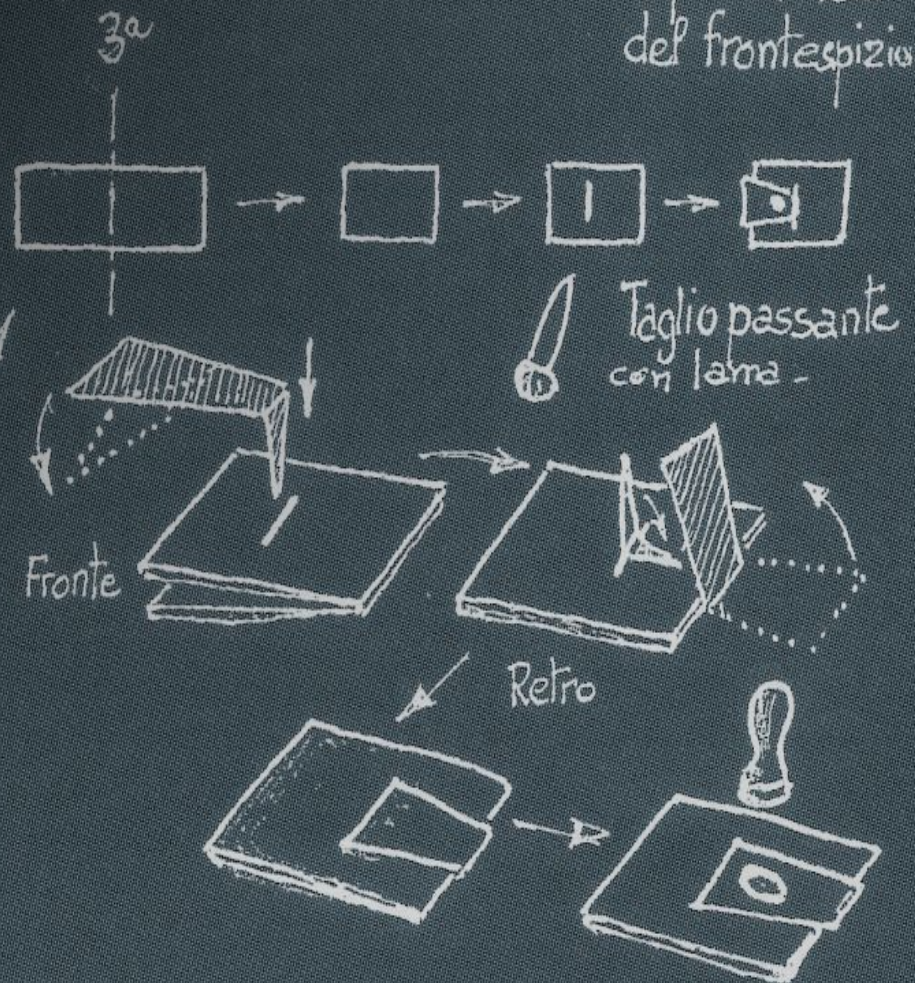 3ª
del frontespizio
Taglio passante
con lama -
Fronte
Retro